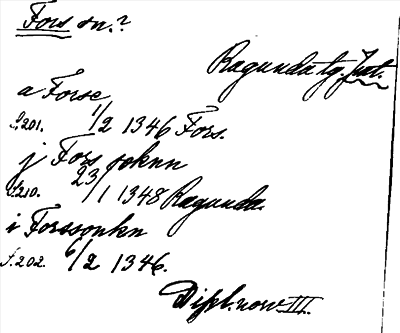 Fors sn.?
Ragunda tg. Jmt.
a Forse
s. 201. 1/2 1346 Fors.
j Fors soknn
s. 210. 23/1 1348 Ragunda.
i Forssonkn
s. 202. 6/2 1346.
Dipl. norv. III.